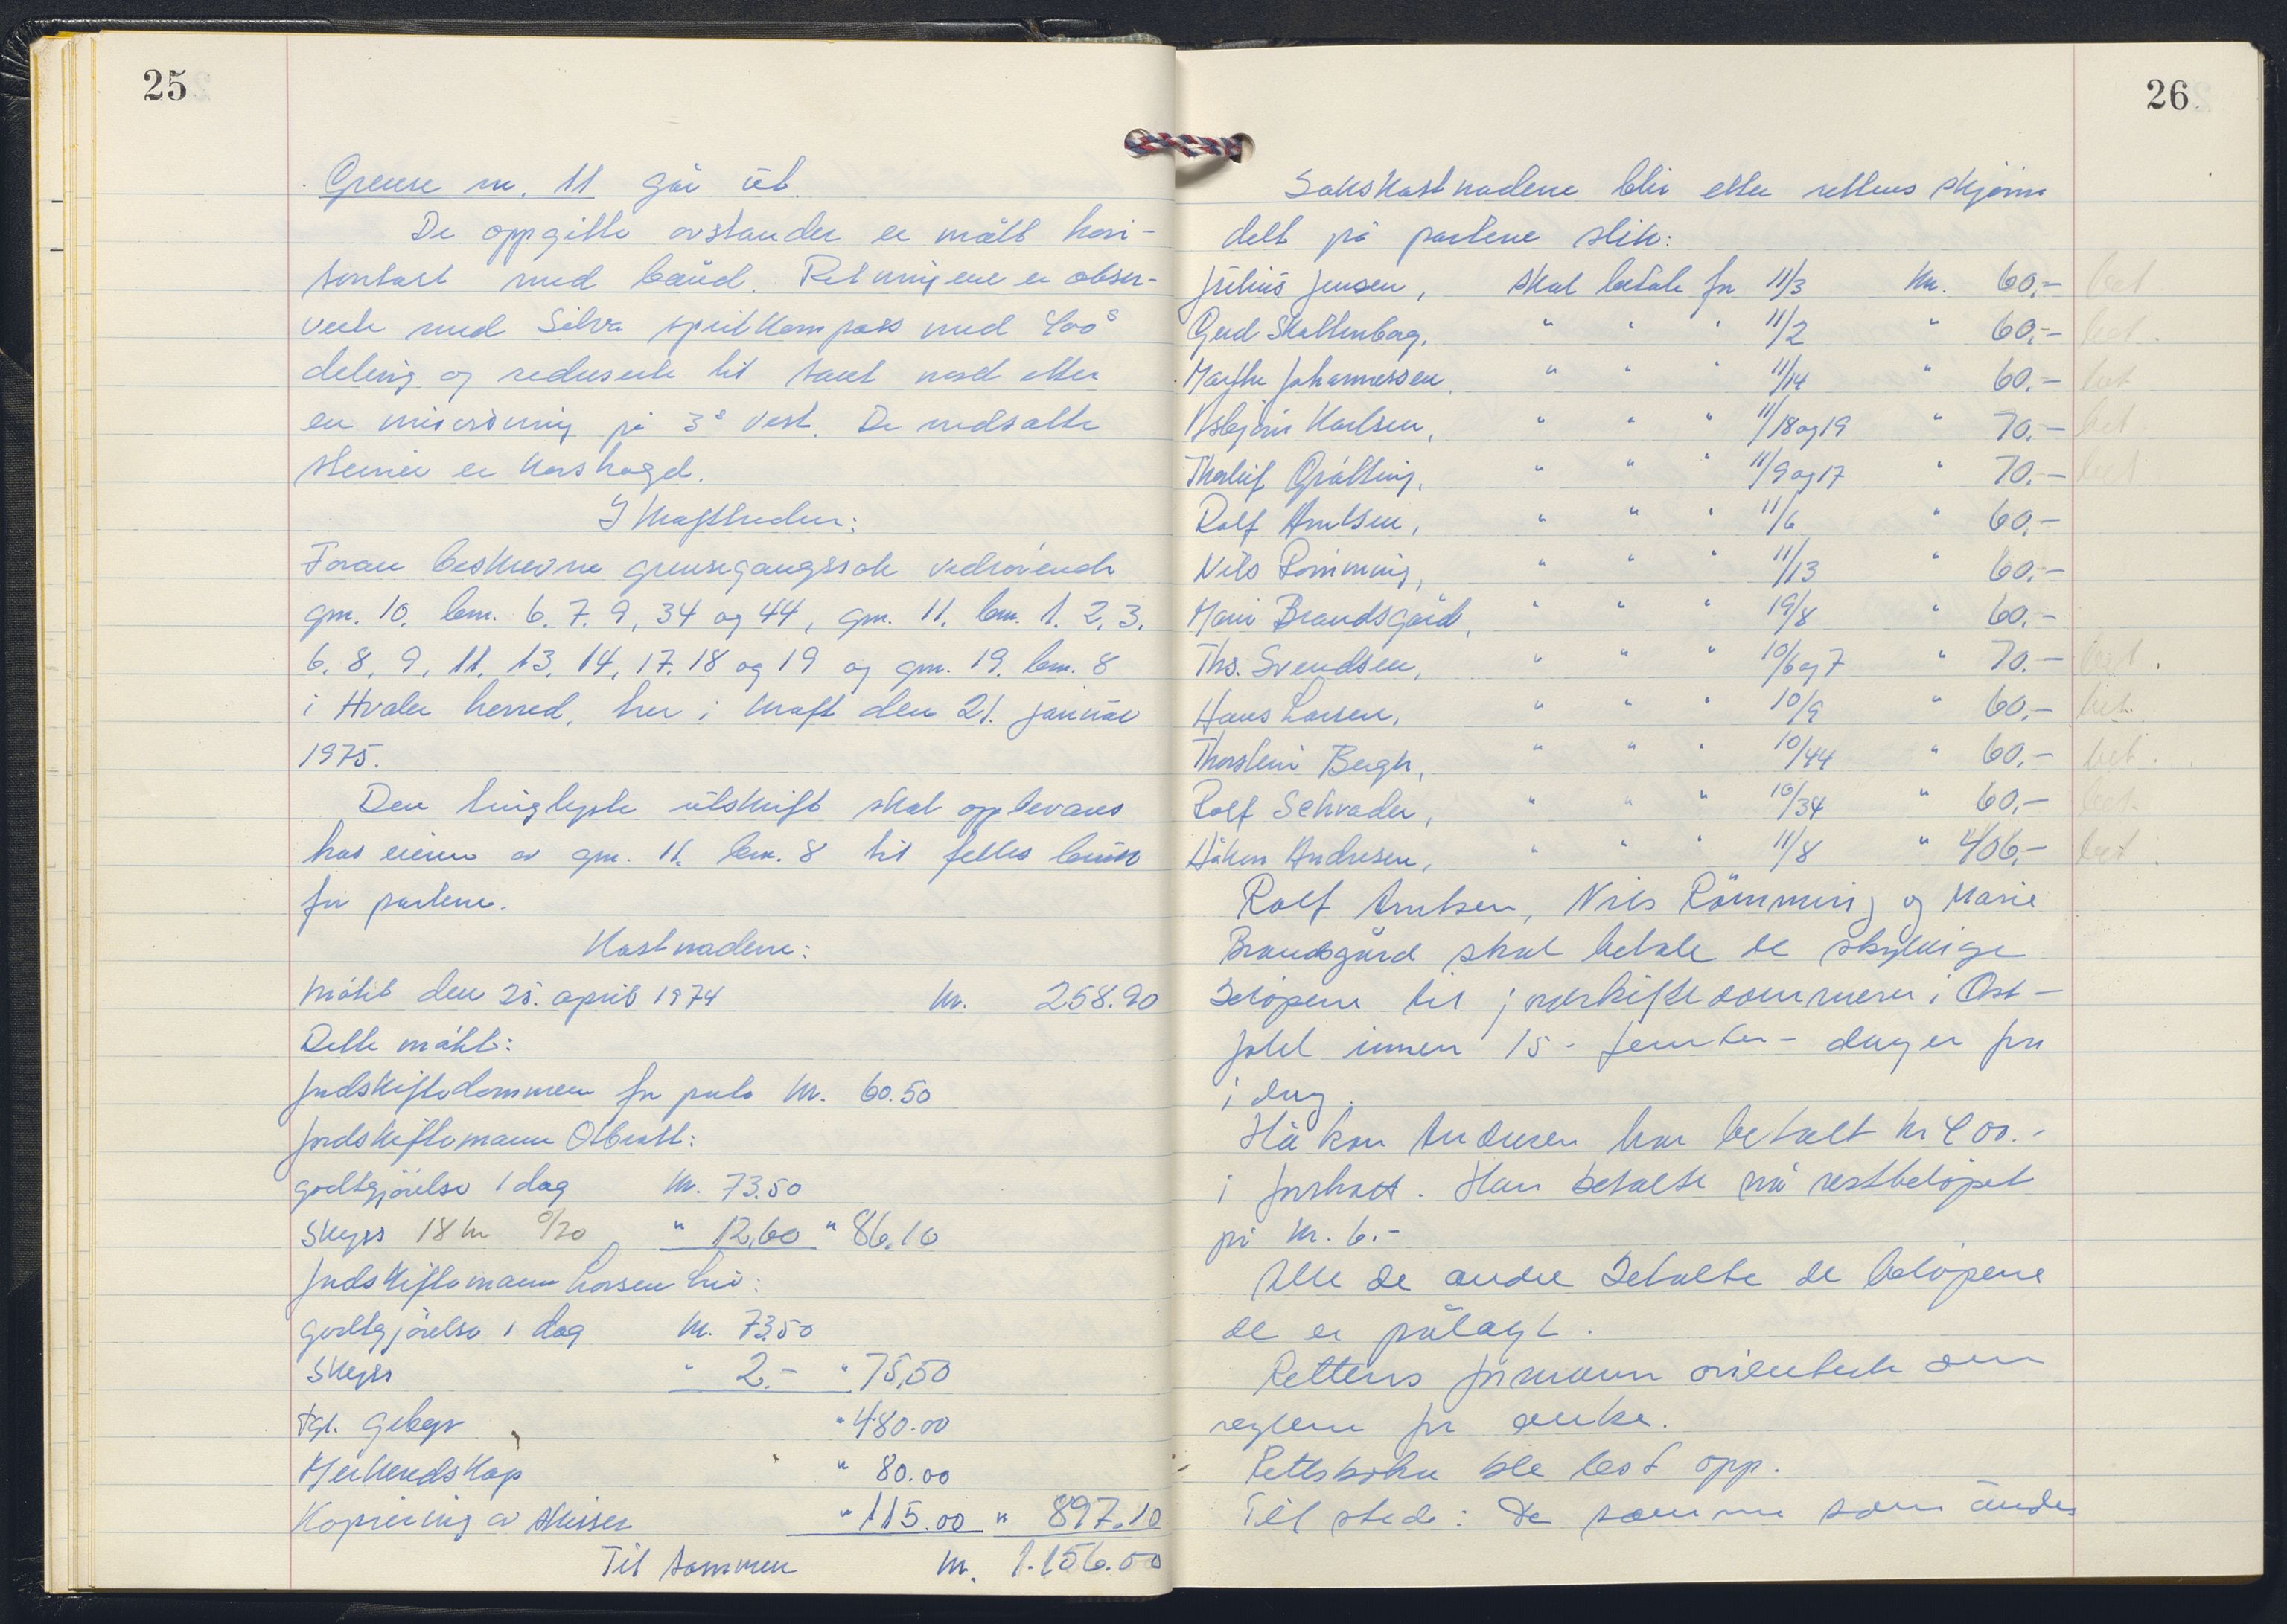 25
Grense nr. 11 går ut.
De oppgitte avstander er målt hori-
sontalt med bånd. Retningene er obser-
verte med Silva speilkompass med 400g
deling og reduserte til sant nord etter
en misvisning på 3g vest. De nedsatte
steiner er krosshogd.
I krafttreden:
Foran beskrevne grensegangssak vedrørende
gnr. 10. bnr. 6. 7. 9, 34 og 44, gnr. 11. bnr. 1. 2. 3.
6. 8, 9, 11, 13, 14, 17. 18 og 19 og gnr. 19. bnr. 8
i Hvaler herred, trer i kraft den 21. januar
1975.
Den tinglyste utskrift skal oppbevares
hos eieren av gnr. 11. bnr. 8 til felles bruk
for partene.
Kostnadene:
Møtet den 25. april 1974 kr. 258.90
Dette møtet:
Jordskiftedommeren for porto kr. 60.50
Jordskiftemann
godtgjørelse 1 dag kr. 73.50
Skyss 18 km 0/70 " 12,60 " 86.10
Jordskiftemann Larsen
godtgjørelse 1 dag kr. 73.50
Skyss " 2.- " 75,50
Tgl. gebyr " 480.00
Merkendskap " 80.00
Kopiering av skisser " 115.00 " 897.10
Til sammen kr. 1.156.00
26
Sakskostnadene blir etter rettens skjønn
delt på partene slik:
Julius Jensen, skal betale for 11/3 kr. 60,- bet
Gerd Skattenborg, " " " 11/2 " 60,- bet.
Marthe Johannessen, " " " 11/14 " 60,- bet
Asbjørn Karlsen, " " " 11/18 og 19 " 70,- bet.
Thorleif Grålting, " " " 11/9 og 17 " 70,- bet
Rolf Arntsen, " " " 11/6 " 60,-
Nils Rømming, " " " 11/13 " 60,-
Marie Brandsgård, " " " 19/8 " 60,-
Ths. Svendsen, " " " 10/6 og 7 " 70.- bet.
Hans Larsen, " " " 10/9 " 60,- bet.
Thorstein Bergh, " " " 10/44 " 60,- bet.
Rolf Schrader, " " " 10/34 " 60,- bet.
Håkon Andresen, " " " 11/8 " 406,- bet.
Rolf Arntsen, Nils Rømming og Marie
Brandsgård skal betale de skyldige
beløpene til jordskiftedommeren i Øst-
fold innen 15 - femten - dager fra
i dag.
Håkon Andresen har betalt kr 400.-
i forskott. Han betalte nå restbeløpet
på kr. 6.-
Alle de andre betalte de beløpene
de er pålagt.
Rettens formann orienterte om
reglene for anke.
Rettsboka ble lest opp.
Til stede: De samme som under